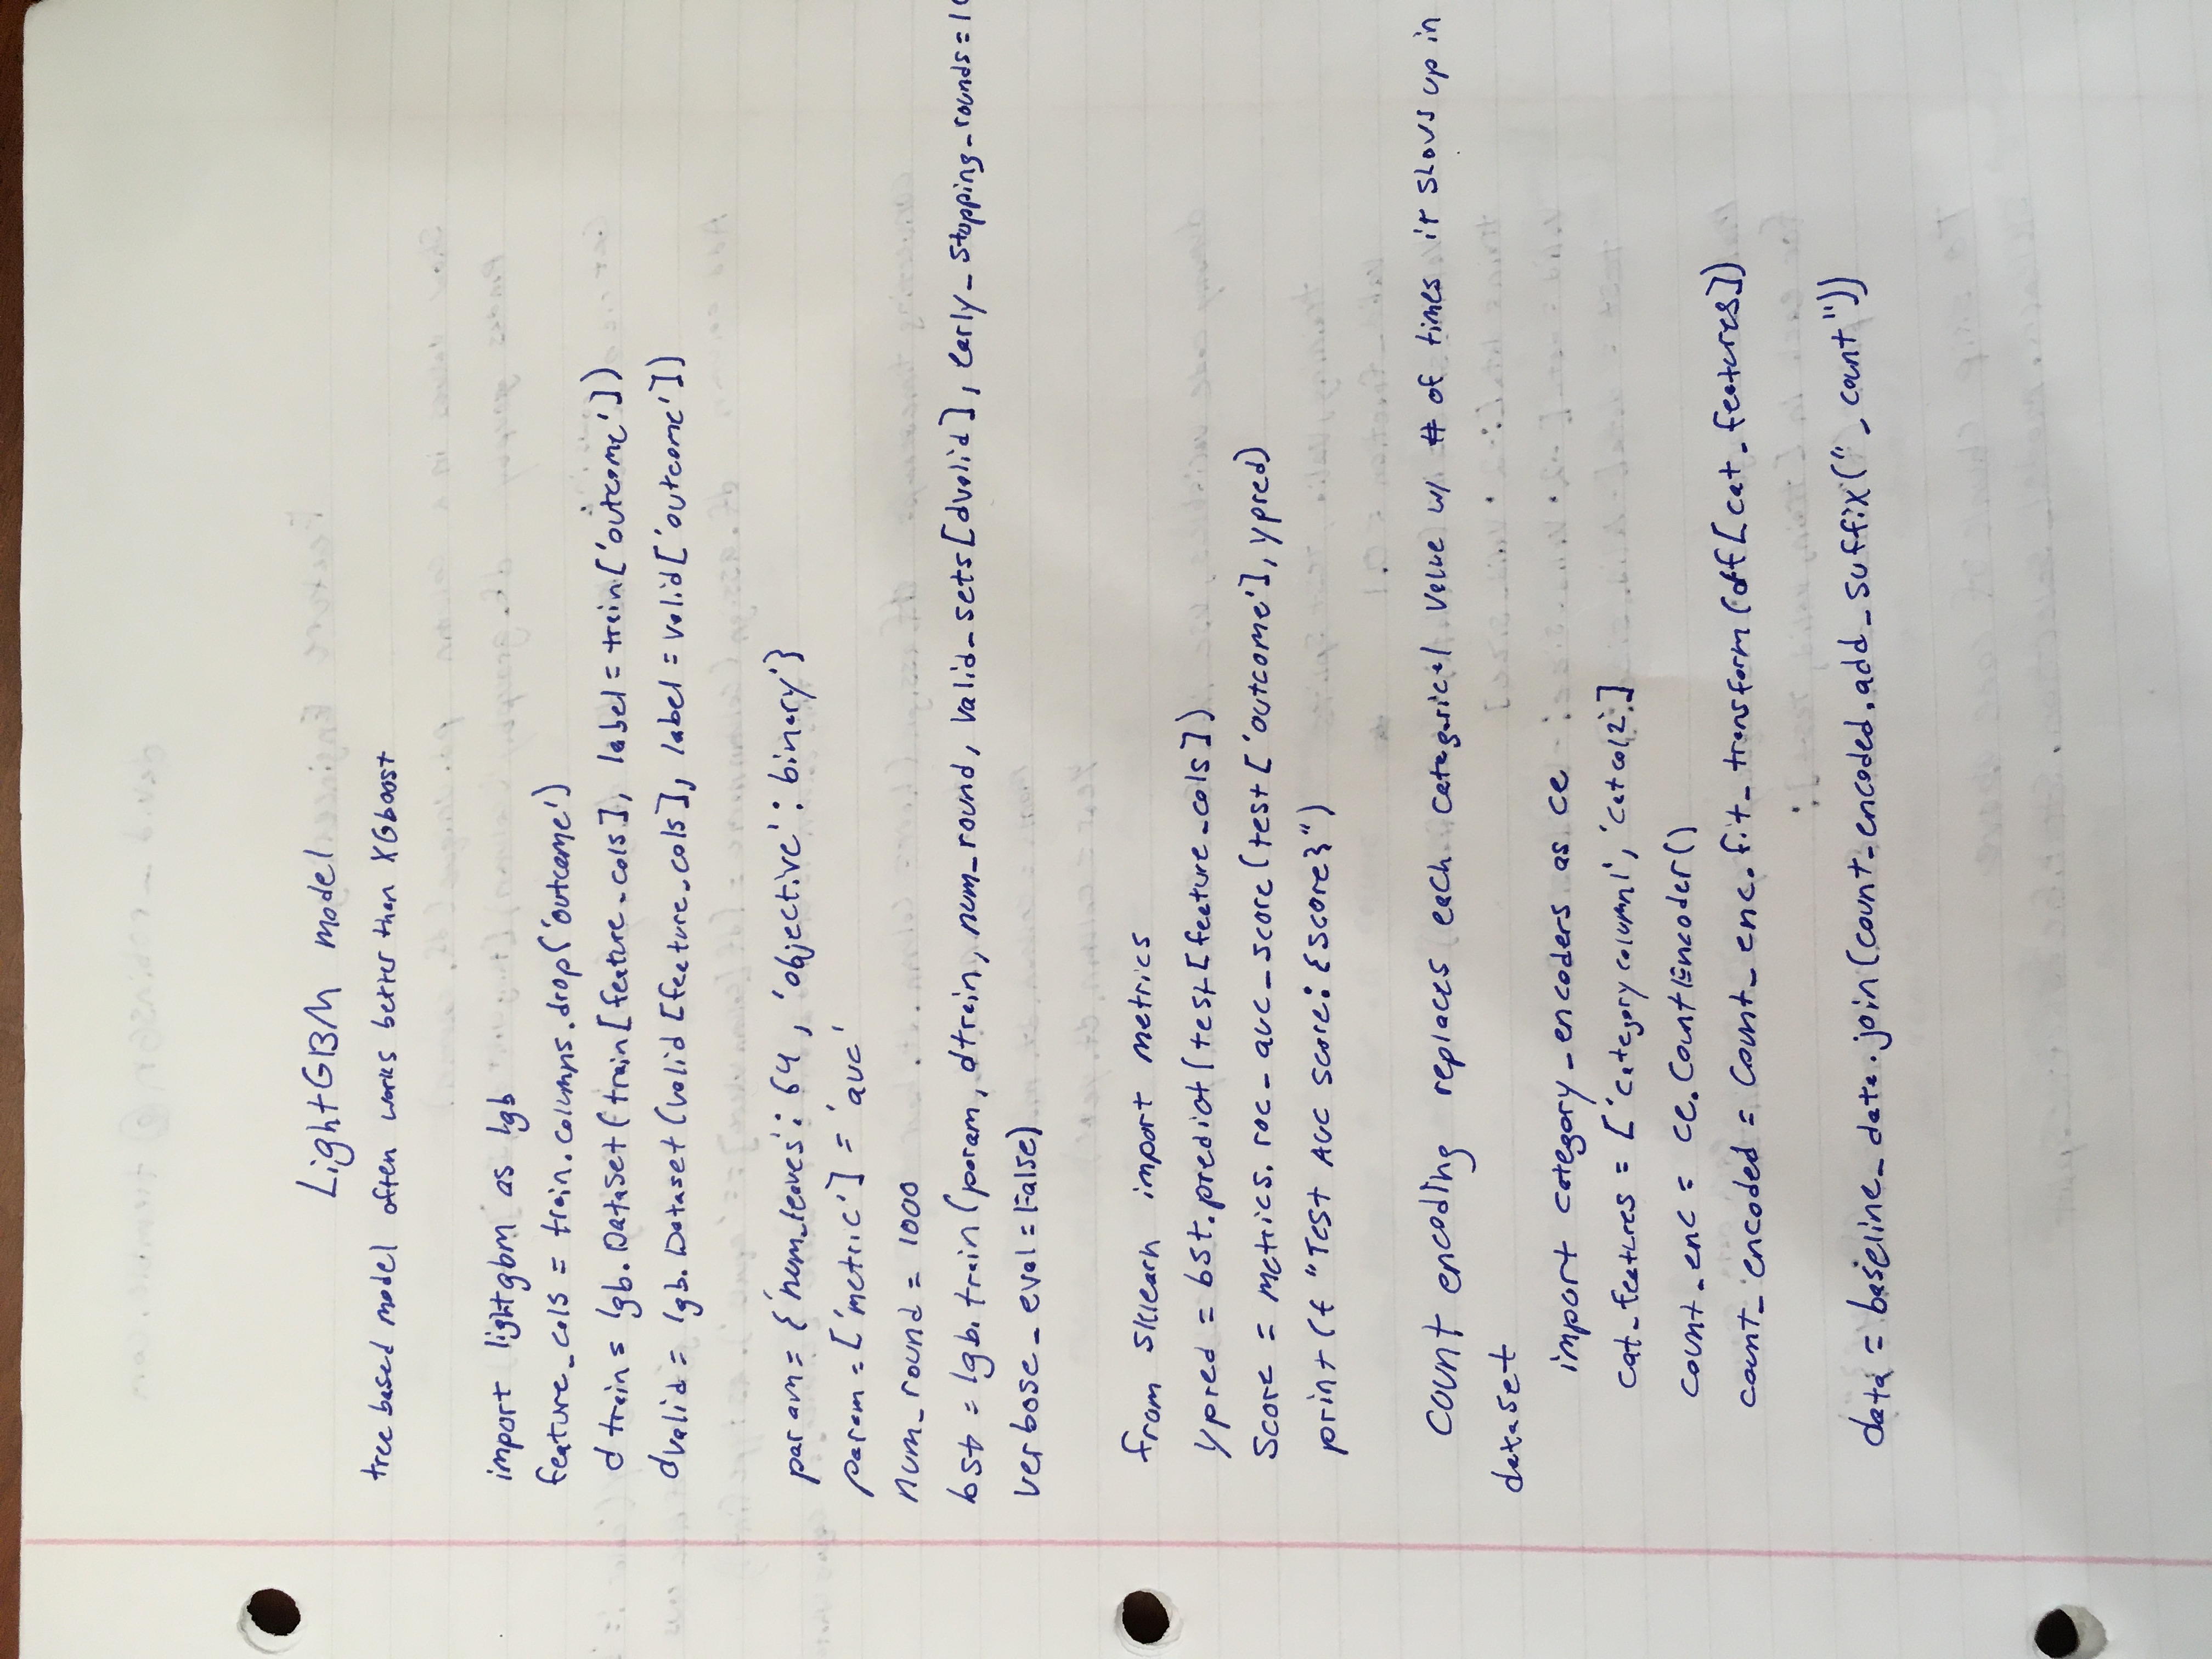 LightGBM model
tree based model often works better than XGboost
import lightgbm as lgb
feature_cols = train.columns.drop('outcome')
dtrain = lgb.DataSet(train[feature_cols], label = train['outcome'])
dvalid = lgb.Dataset(valid[feature_cols], label = valid['outcome'])
param = {'num_leaves': 64, 'objective': binary'}
param = ['metric'] = 'auc'
num_round = 1000
bst = lgb.train(param, dtrain, num_round, valid_sets[dvalid], early_stopping_rounds=10
verbose_eval = False)
from sklearn import metrics
ypred = bst.predict(test[feature_cols])
Score = metrics.roc_auc_score(test['outcome'], ypred)
print(f "Test AUC score: {score}")
Count encoding replaces each categorical value w/ # of times it shows up in
dataset
import category_encoders as ce
cat_features = ['category column1', 'catcol2']
count_enc = ce.CountEncoder()
count_encoded = count_enc.fit_transform(df[cat_features])
data = baseline_data.join(count_encoded.add_suffix("_count"))